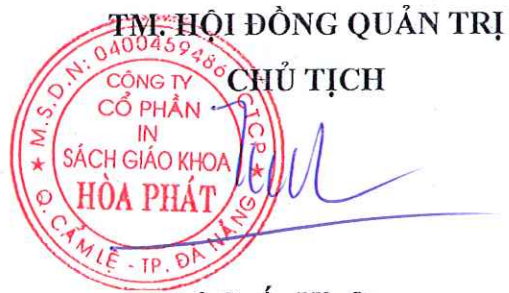 TM. HỘI ĐỒNG QUẢN TRỊ
CHỦ TỊCH
M.S.D.N: 0400459486 - CTCP
CÔNG TY
CỔ PHẦN
IN
SÁCH GIÁO KHOA
HÒA PHÁT
Q. CẨM LỆ - TP. ĐÀ NẴNG